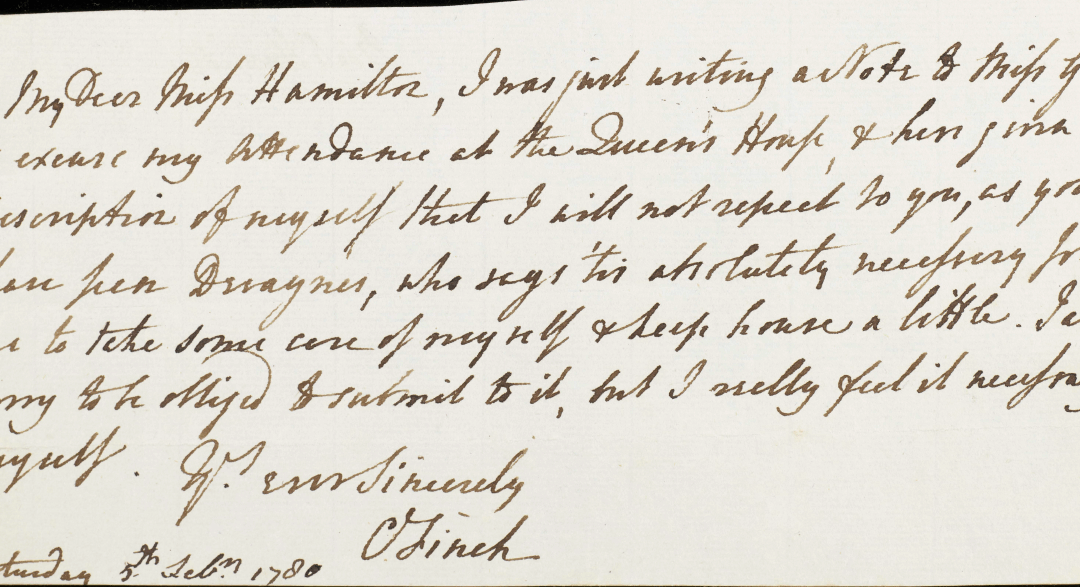 My Dear Miss Hamilton, I was just writing a Note to Miss G
excuse my Attendance at the Queen's House, & have given
escription of myself that I will not repeat to you, as you
have seen Devaynes, who says 'tis absolutely necessary for
e to take some care of myself & keep house a little. I a
orry to be obliged to submit to it, but I really feel it necessary
myself.
Yr. ever Sincerely
C Finch
turday 5th Febry. 1780